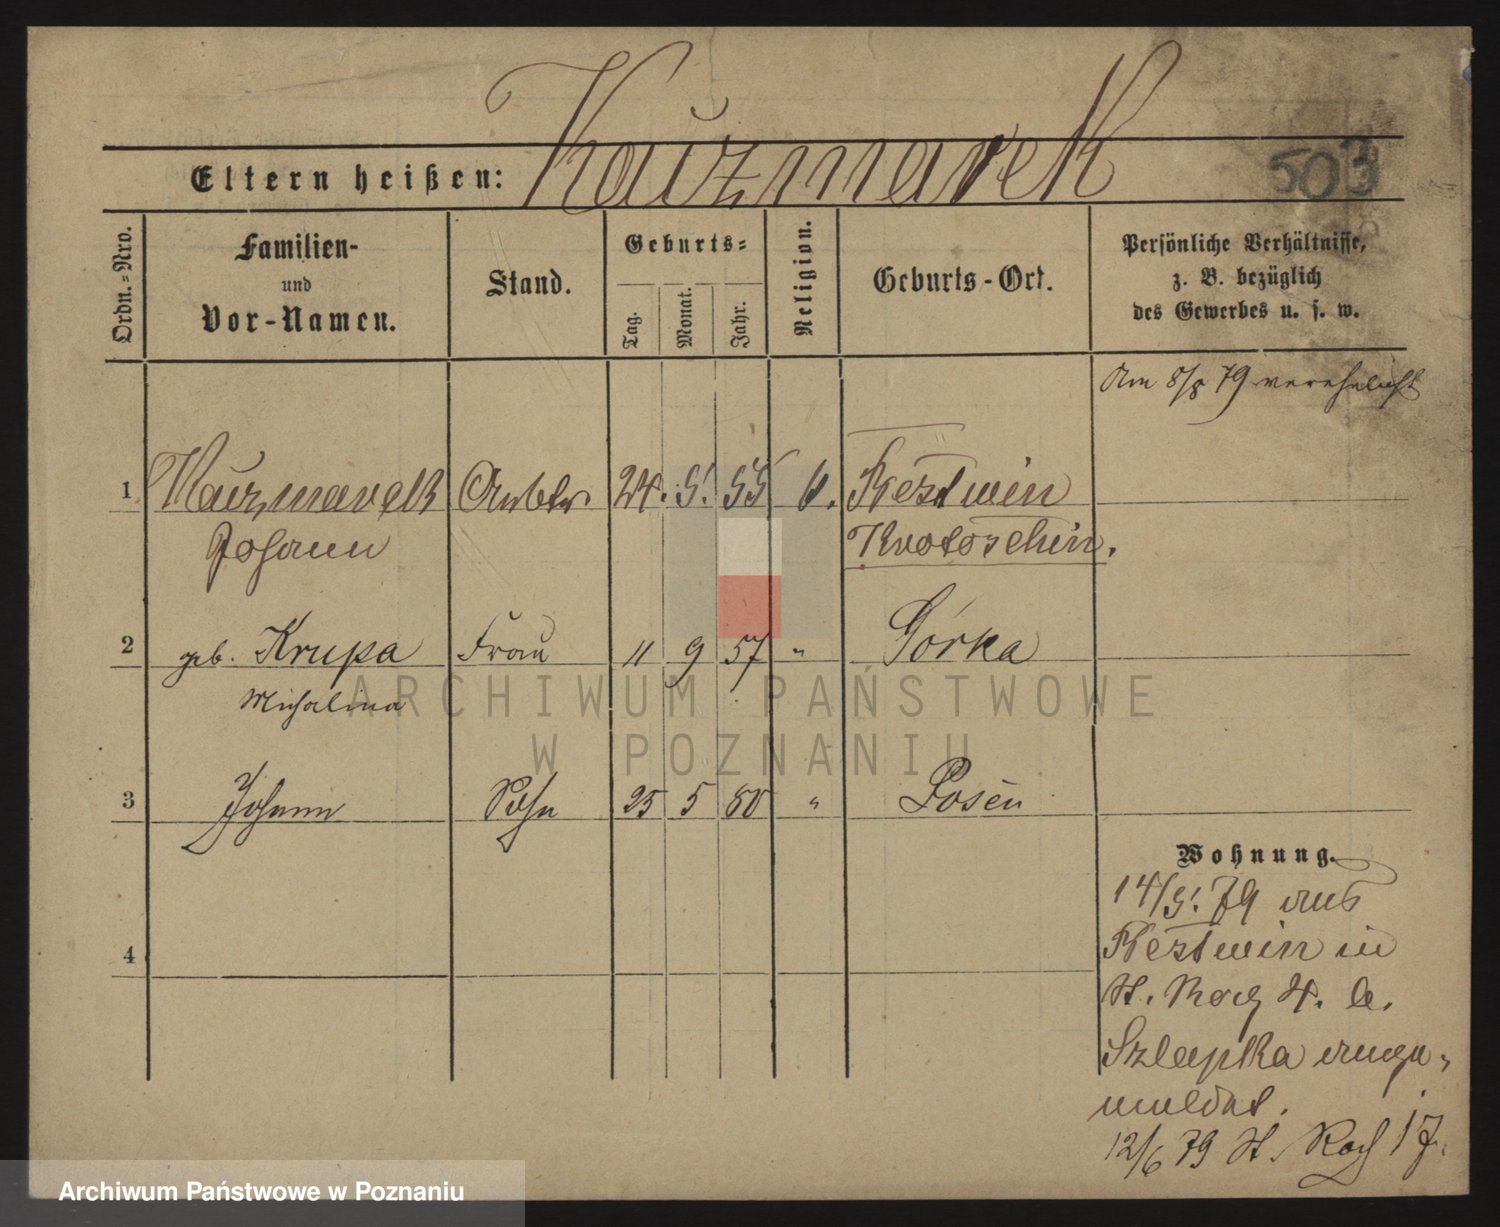 Kaczmarek
503
Eltern heißen:
Ordn.-Nro.
Familien-
und
Vor-Namen.
Stand.
Geburts-
Tag.
Monat.
Jahr.
Religion.
Geburts-Ort.
Persönliche Verhältnisse,
z. B. bezüglich
des Gewerbes u. s. w.
Am 8/8 79 verehelicht
1 Kaczmarek Arbtr. 24. 5. 55 k. Restwin
Johann Krotoschin.
2 geb. Krupa Frau 11 9 57 " Górka
Michalina
3 Johann Sohn 25 5 80 " Posen
4
Wohnung.
14/5. 79 aus
Restwin in
St. Roch 4. b.
Szlapka ange-
meldet.
12/6 79 St. Roch 17.
ARCHIWUM PAŃSTWOWE
W POZNANIU
Archiwum Państwowe w Poznaniu